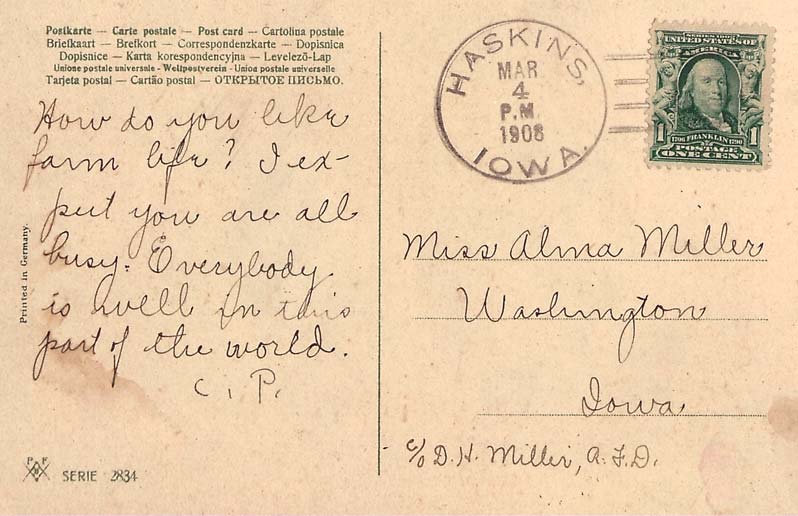 Postkarte — Carte postale — Post card — Cartolina postale
Briefkaart — Brefkort — Correspondenzkarte — Dopisnica
Dopisnice — Karta korespondencyjna — Levelező-Lap
Unione postale universale - Weltpostverein - Union postale universelle
Tarjeta postal — Cartão postal — ОТКРЫТОЕ ПИСЬМО.
How do you like
farm life? I ex-
pect you are all
busy. Everybody
is well in this
part of the world.
C. P.
Printed in Germany.
P F
SERIE 2834
HASKINS,
MAR
4
P.M.
1908
IOWA.
SERIES 1902
UNITED STATES OF
AMERICA
1706 FRANKLIN 1790
1 1
POSTAGE
ONE CENT
Miss Alma Miller
Washington
Iowa
c/o D. H. Miller, R.F.D.